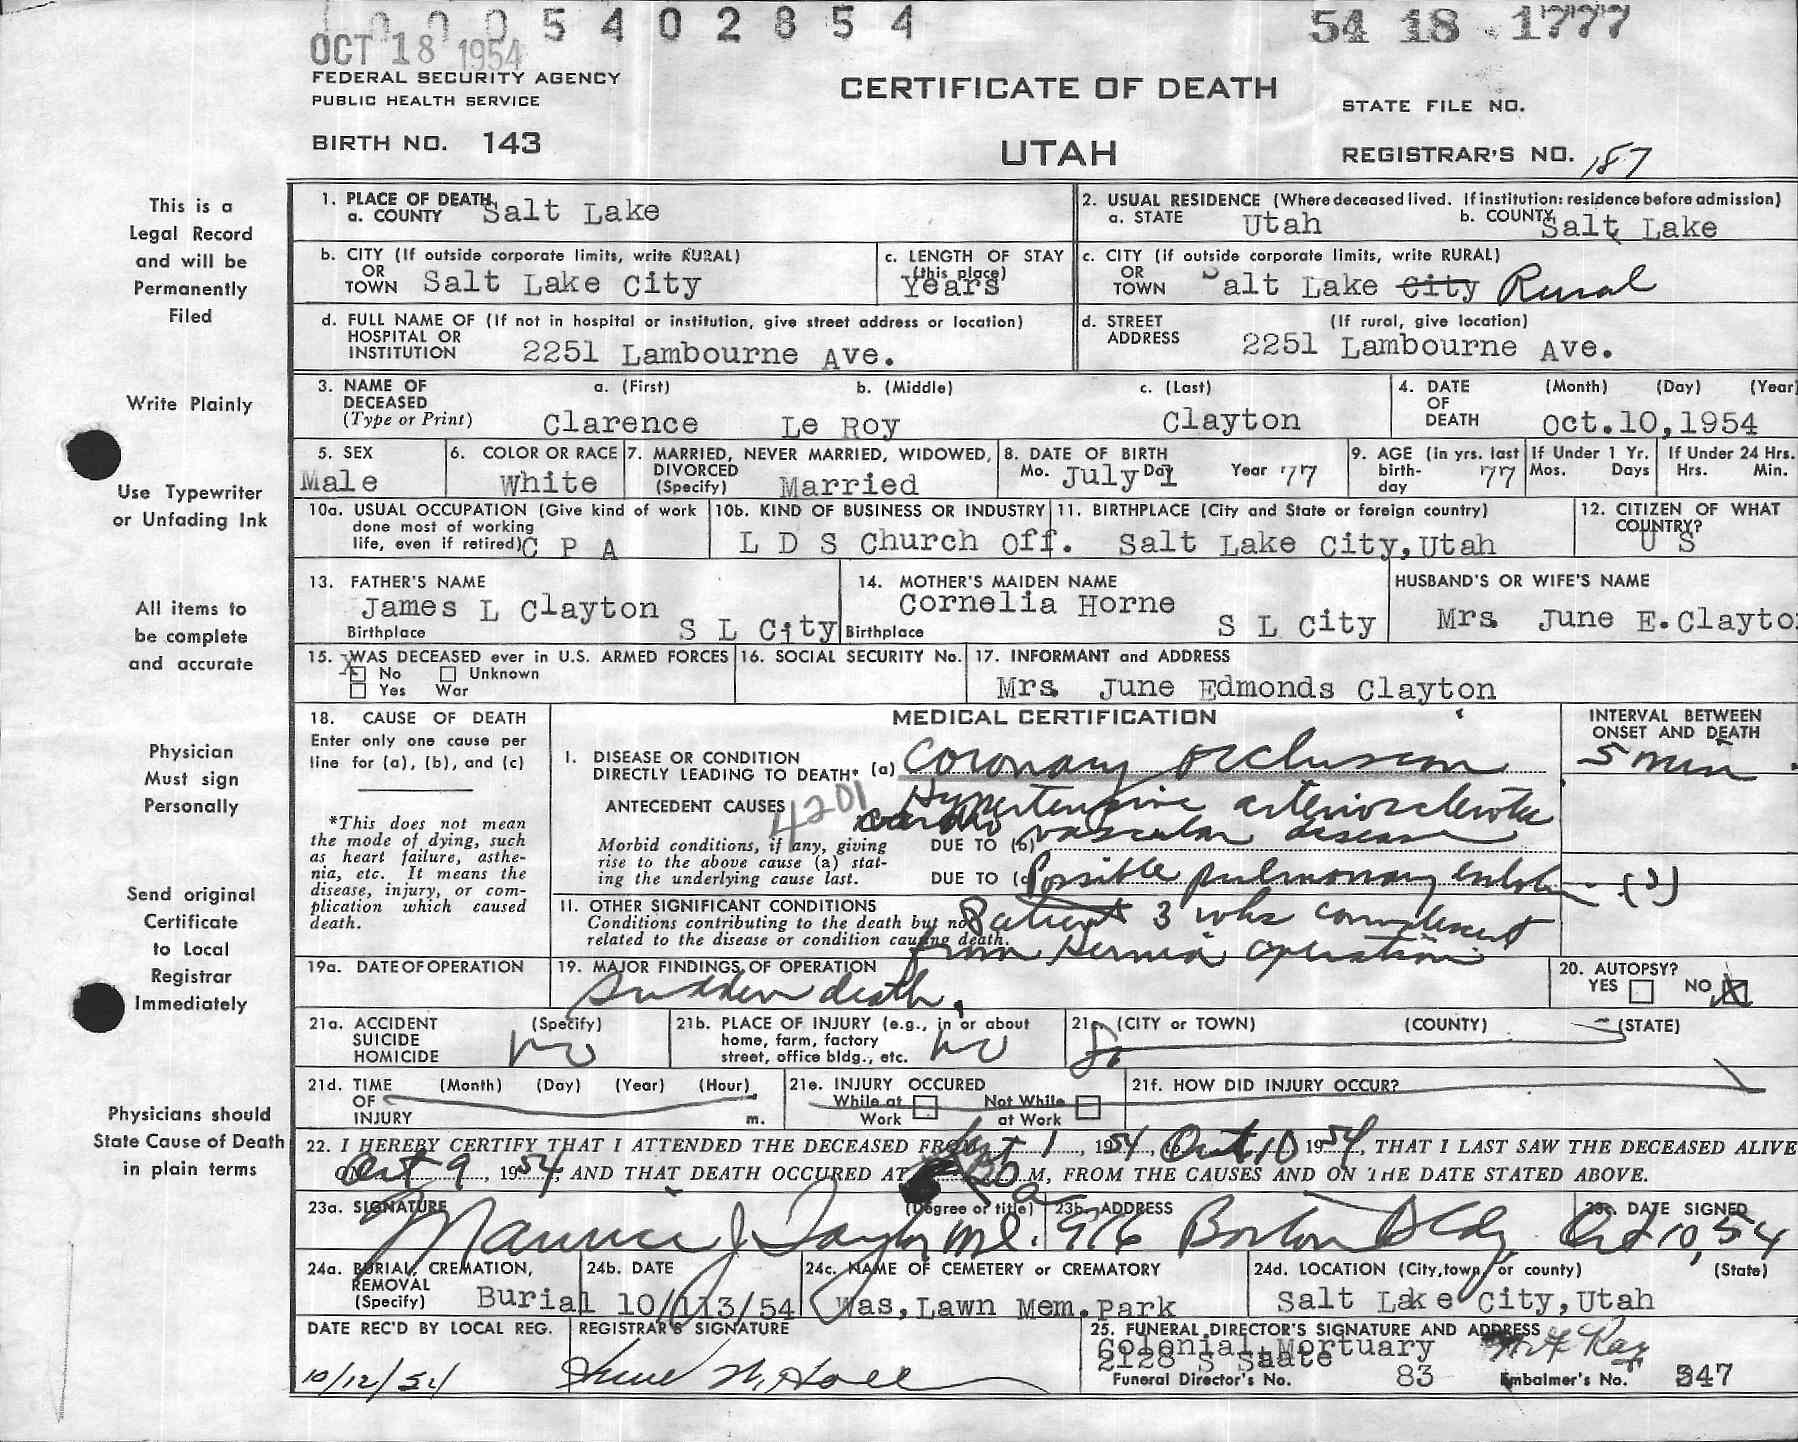 0 0 0 5 4 0 2 8 5 4
54 18 1777
OCT 18 1954
FEDERAL SECURITY AGENCY
PUBLIC HEALTH SERVICE
CERTIFICATE OF DEATH
STATE FILE NO.
BIRTH NO. 143
UTAH
REGISTRAR'S NO. 187
This is a
Legal Record
and will be
Permanently
Filed
Write Plainly
Use Typewriter
or Unfading Ink
All items to
be complete
and accurate
Physician
Must sign
Personally
Send original
Certificate
to Local
Registrar
Immediately
Physicians should
State Cause of Death
in plain terms
1. PLACE OF DEATH
a. COUNTY Salt Lake
2. USUAL RESIDENCE (Where deceased lived. If institution: residence before admission)
a. STATE Utah b. COUNTY Salt Lake
b. CITY (If outside corporate limits, write RURAL)
OR
TOWN Salt Lake City
c. LENGTH OF STAY
(this place)
Years
c. CITY (if outside corporate limits, write RURAL)
OR
TOWN Salt Lake City Rural
d. FULL NAME OF (If not in hospital or institution, give street address or location)
HOSPITAL OR
INSTITUTION 2251 Lambourne Ave.
d. STREET (If rural, give location)
ADDRESS 2251 Lambourne Ave.
3. NAME OF a. (First) b. (Middle) c. (Last)
DECEASED
(Type or Print) Clarence Le Roy Clayton
4. DATE (Month) (Day) (Year)
OF
DEATH Oct.10,1954
5. SEX
Male
6. COLOR OR RACE
White
7. MARRIED, NEVER MARRIED, WIDOWED,
DIVORCED
(Specify) Married
8. DATE OF BIRTH
Mo. July Day 1 Year '77
9. AGE (In yrs. last
birth-
day 77
If Under 1 Yr.
Mos. Days
If Under 24 Hrs.
Hrs. Min.
10a. USUAL OCCUPATION (Give kind of work
done most of working
life, even if retired) C P A
10b. KIND OF BUSINESS OR INDUSTRY
L D S Church Off.
11. BIRTHPLACE (City and State or foreign country)
Salt Lake City, Utah
12. CITIZEN OF WHAT
COUNTRY?
U S
13. FATHER'S NAME
James L Clayton
Birthplace S L City
14. MOTHER'S MAIDEN NAME
Cornelia Horne
Birthplace S L City
HUSBAND'S OR WIFE'S NAME
Mrs June E.Clayto
15. WAS DECEASED ever in U.S. ARMED FORCES
X No Unknown
Yes War
16. SOCIAL SECURITY No.
17. INFORMANT and ADDRESS
Mrs June Edmonds Clayton
18. CAUSE OF DEATH
Enter only one cause per
line for (a), (b), and (c)
*This does not mean
the mode of dying, such
as heart failure, asthe-
nia, etc. It means the
disease, injury, or com-
plication which caused
death.
MEDICAL CERTIFICATION
INTERVAL BETWEEN
ONSET AND DEATH
I. DISEASE OR CONDITION
DIRECTLY LEADING TO DEATH* (a) Coronary occlusion 5 min
ANTECEDENT CAUSES 4201 Hypertensive arteriosclerotic
cardio vascular disease
Morbid conditions, if any, giving DUE TO (b)
rise to the above cause (a) stat-
ing the underlying cause last. DUE TO (c) Possible pulmonary embolism (?)
11. OTHER SIGNIFICANT CONDITIONS
Conditions contributing to the death but not
related to the disease or condition causing death.
Patient 3 wks convalescent
from Hernia operation
19a. DATE OF OPERATION
19. MAJOR FINDINGS OF OPERATION
Sudden death.
20. AUTOPSY?
YES NO X
21a. ACCIDENT (Specify)
SUICIDE
HOMICIDE no
21b. PLACE OF INJURY (e.g., in or about
home, farm, factory
street, office bldg., etc. no
21c. (CITY or TOWN) (COUNTY) (STATE)
21d. TIME (Month) (Day) (Year) (Hour)
OF
INJURY m.
21e. INJURY OCCURED
While at Not While
Work at Work
21f. HOW DID INJURY OCCUR?
22. I HEREBY CERTIFY THAT I ATTENDED THE DECEASED FROM 1, 1954, Oct 10 1954, THAT I LAST SAW THE DECEASED ALIVE
ON Oct 9, 1954, AND THAT DEATH OCCURED AT M, FROM THE CAUSES AND ON THE DATE STATED ABOVE.
23a. SIGNATURE (Degree or title)
Maurice J. Taylor MD.
23b. ADDRESS
976 Boston Bldg
23c. DATE SIGNED
Oct 10, 54
24a. BURIAL, CREMATION,
REMOVAL
(Specify) Burial
24b. DATE
10/13/54
24c. NAME OF CEMETERY or CREMATORY
Was, Lawn Mem. Park
24d. LOCATION (City, town, or county) (State)
Salt Lake City, Utah
DATE REC'D BY LOCAL REG.
10/12/54
REGISTRAR'S SIGNATURE
25. FUNERAL DIRECTOR'S SIGNATURE AND ADDRESS
Colonial Mortuary
2128 S State
Funeral Director's No. 83 Embalmer's No. 347